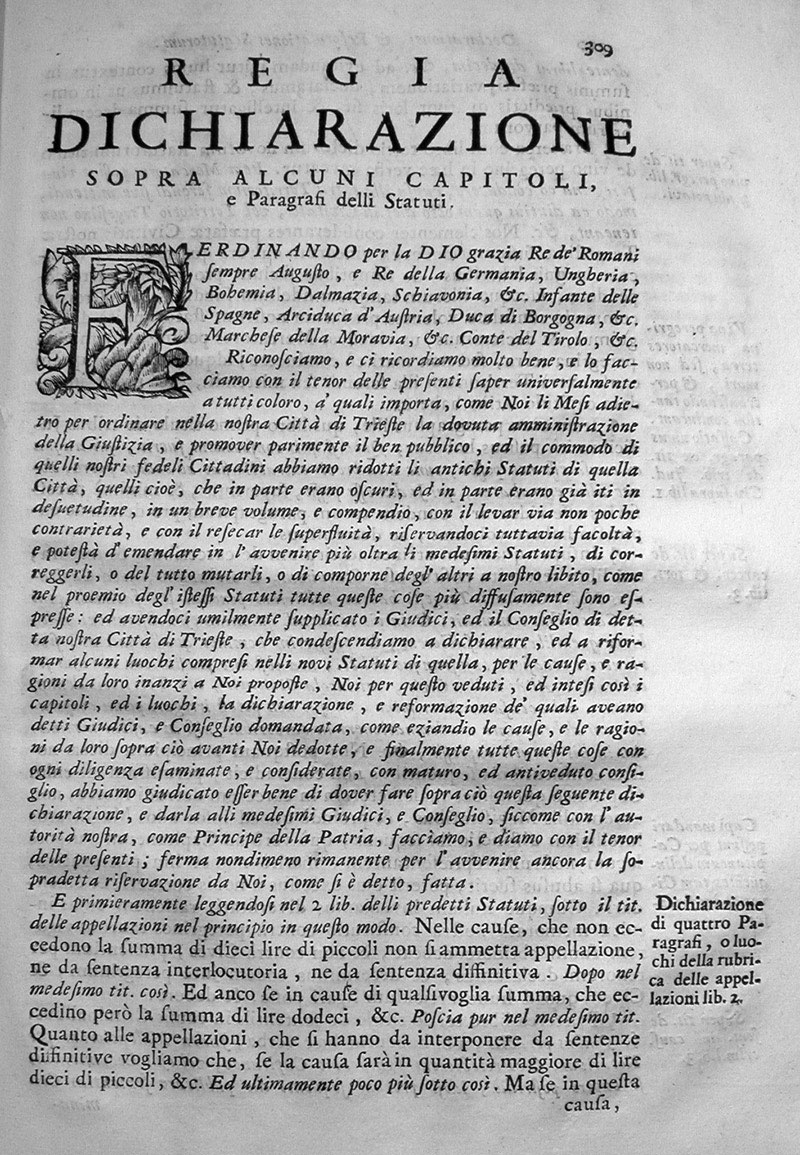 309
REGIA
DICHIARAZIONE
SOPRA ALCUNI CAPITOLI,
e Paragrafi delli Statuti.
FERDINANDO per la DIO grazia Re de' Romani
ſempre Auguſto, e Re della Germania, Ungheria,
Bohemia, Dalmazia, Schiavonia, &c. Infante delle
Spagne, Arciduca d'Auſtria, Duca di Borgogna, &c.
Marcheſe della Moravia, &c. Conte del Tirolo, &c.
Riconoſciamo, e ci ricordiamo molto bene, e lo fac-
ciamo con il tenor delle preſenti ſaper univerſalmente
a tutti coloro, a' quali importa, come Noi li Meſi adie-
tro per ordinare nella noſtra Città di Trieſte la dovuta amminiſtrazione
della Giuſtizia, e promover parimente il ben pubblico, ed il commodo di
quelli noſtri fedeli Cittadini abbiamo ridotti li antichi Statuti di quella
Città, quelli cioè, che in parte erano oſcuri, ed in parte erano già iti in
deſuetudine, in un breve volume, e compendio, con il levar via non poche
contrarietà, e con il reſecar le ſuperfluità, riſervandoci tuttavia facoltà,
e poteſtà d'emendare in l'avvenire più oltra li medeſimi Statuti, di cor-
reggerli, o del tutto mutarli, o di comporne degl'altri a noſtro libito, come
nel proemio degl'iſteſſi Statuti tutte queſte coſe più diffuſamente ſono eſ-
preſſe: ed avendoci umilmente ſupplicato i Giudici, ed il Conſeglio di det-
ta noſtra Città di Trieſte, che condeſcendiamo a dichiarare, ed a rifor-
mar alcuni luochi compreſi nelli novi Statuti di quella, per le cauſe, e ra-
gioni da loro inanzi a Noi propoſte, Noi per queſto veduti, ed inteſi così i
capitoli, ed i luochi, la dichiarazione, e reformazione de' quali aveano
detti Giudici, e Conſeglio domandata, come eziandio le cauſe, e le ragio-
ni da loro ſopra ciò avanti Noi dedotte, e finalmente tutte queſte coſe con
ogni diligenza eſaminate, e conſiderate, con maturo, ed antiveduto conſi-
glio, abbiamo giudicato eſſer bene di dover fare ſopra ciò queſta ſeguente di-
chiarazione, e darla alli medeſimi Giudici, e Conſeglio, ſiccome con l'au-
torità noſtra, come Principe della Patria, facciamo, e diamo con il tenor
delle preſenti; ferma nondimeno rimanente per l'avvenire ancora la ſo-
pradetta riſervazione da Noi, come ſi è detto, fatta.
E primieramente leggendoſi nel 2 lib. delli predetti Statuti, ſotto il tit.
delle appellazioni nel principio in queſto modo. Nelle cauſe, che non ec-
cedono la ſumma di dieci lire di piccoli non ſi ammetta appellazione,
ne da ſentenza interlocutoria, ne da ſentenza diffinitiva. Dopo nel
medeſimo tit. così. Ed anco ſe in cauſe di qualſivoglia ſumma, che ec-
cedino però la ſumma di lire dodeci, &c. Poſcia pur nel medeſimo tit.
Quanto alle appellazioni, che ſi hanno da interponere da ſentenze
diffinitive vogliamo che, ſe la cauſa ſarà in quantità maggiore di lire
dieci di piccoli, &c. Ed ultimamente poco più ſotto così. Ma ſe in queſta
cauſa,
Dichiarazione
di quattro Pa-
ragrafi, o luo-
chi della rubri-
ca delle appel-
lazioni lib. 2.